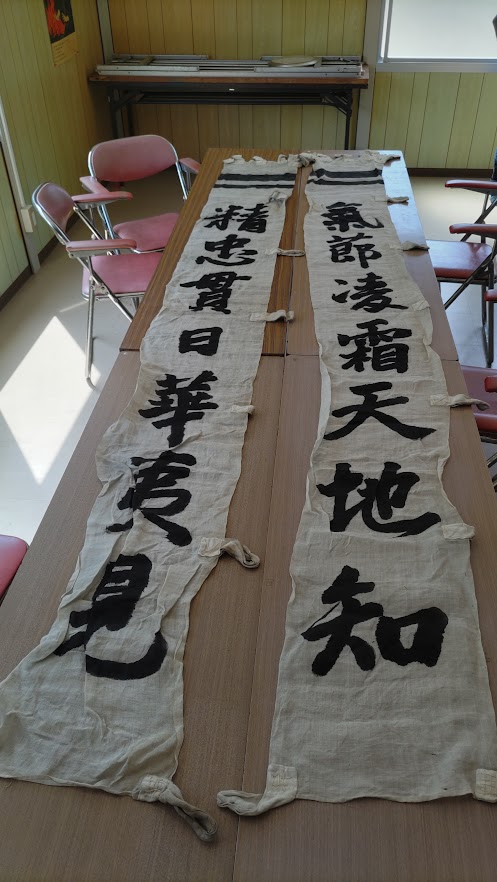 氣節凌霜天地知
精忠貫日華夷見